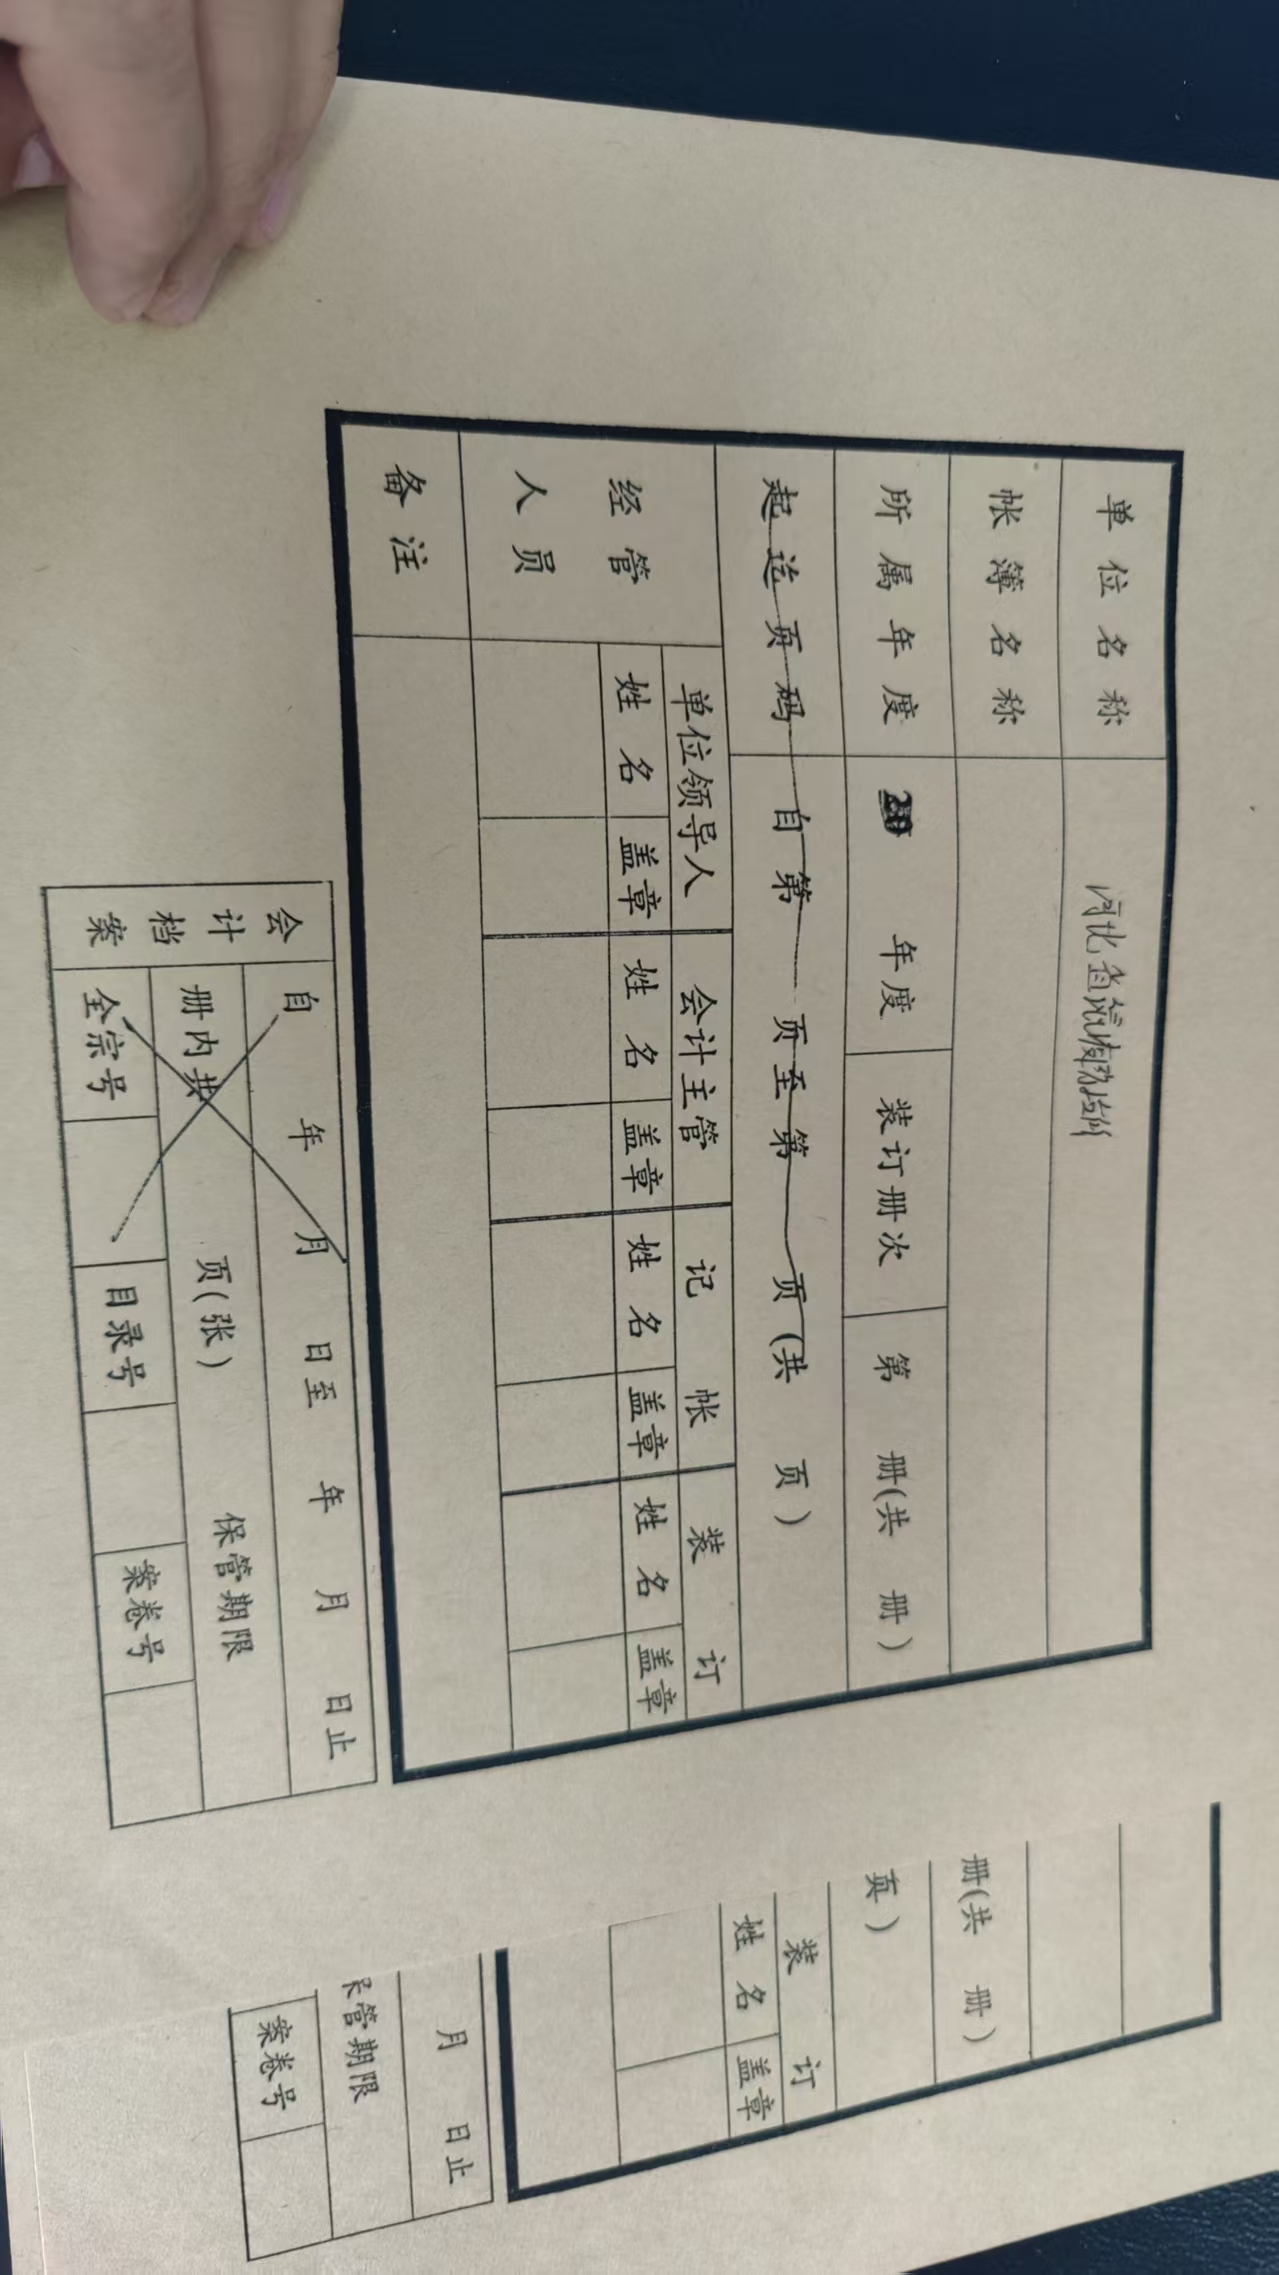 单位名称 河北省
帐簿名称
所属年度 年度 装订册次 第 册(共 册)
起迄页码 自第 页至第 页(共 页)
经管人员 单位领导人 会计主管 记帐 装订
姓名 盖章 姓名 盖章 姓名 盖章 姓名 盖章
备注
会计档案 自 年 月 日至 年 月 日止
册内共 页(张) 保管期限
全宗号 目录号 案卷号
册(共 册)
页)
装订
姓名 盖章
月 日止
管期限
案卷号